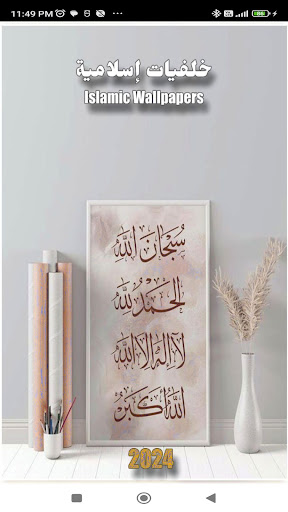 11:49 PM
خلفيات إسلامية
Islamic Wallpapers
سُبْحَانَ اللَّه
الحَمْدُ لِلَّه
لَا إِلَهَ إِلَّا اللَّه
اللَّهُ أَكْبَرُ
2024